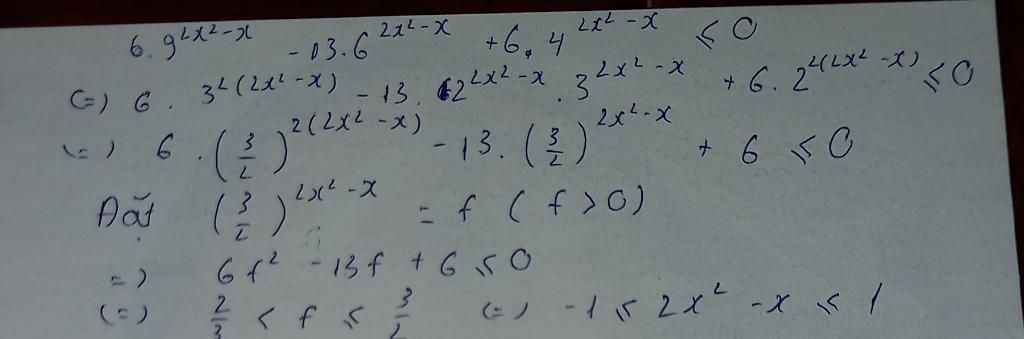 6.9^{2x²-x} - 13.6^{2x²-x} + 6.4^{2x²-x} ≤ 0
(=) 6 . 3^{2(2x²-x)} - 13 . 2^{2x²-x} . 3^{2x²-x} + 6 . 2^{2(2x²-x)} ≤ 0
(=) 6 . (3/2)^{2(2x²-x)} - 13 . (3/2)^{2x²-x} + 6 ≤ 0
Đặt (3/2)^{2x²-x} = f ( f > 0)
=) 6f² - 13f + 6 ≤ 0
(=) 2/3 < f ≤ 3/2 (=) -1 ≤ 2x² - x ≤ 1